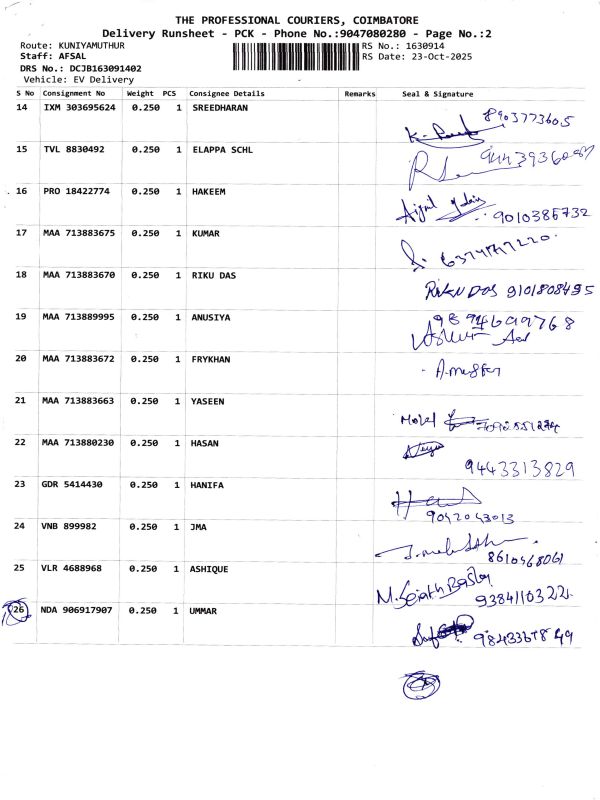 THE PROFESSIONAL COURIERS, COIMBATORE
Delivery Runsheet - PCK - Phone No.:9047080280 - Page No.:2
Route: KUNIYAMUTHUR RS No.: 1630914
Staff: AFSAL RS Date: 23-Oct-2025
DRS No.: DCJB163091402
Vehicle: EV Delivery
S No Consignment No Weight PCS Consignee Details Remarks Seal & Signature
14 IXM 303695624 0.250 1 SREEDHARAN
8903773605
15 TVL 8830492 0.250 1 ELAPPA SCHL
16 PRO 18422774 0.250 1 HAKEEM
9010386732
17 MAA 713883675 0.250 1 KUMAR
18 MAA 713883670 0.250 1 RIKU DAS
RIKU DAS 9101808495
19 MAA 713889995 0.250 1 ANUSIYA
9894699768
20 MAA 713883672 0.250 1 FRYKHAN
21 MAA 713883663 0.250 1 YASEEN
22 MAA 713880230 0.250 1 HASAN
9443313829
23 GDR 5414430 0.250 1 HANIFA
9042043013
24 VNB 899982 0.250 1 JMA
8610468061
25 VLR 4688968 0.250 1 ASHIQUE
9384110322
26 NDA 906917907 0.250 1 UMMAR